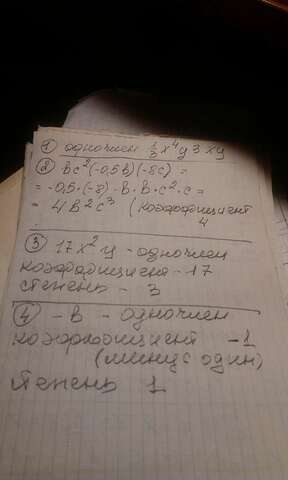 ① одночлен 1/3 x⁴y 3 xy
② bc²(-0,5b)(-8c) =
= -0,5·(-8)·b·b·c²·c =
= 4b²c³ (коэффициент
4
③ 17x²y - одночлен
коэффициент - 17
степень - 3
④ -b - одночлен
коэффициент -1
(минус один)
степень 1